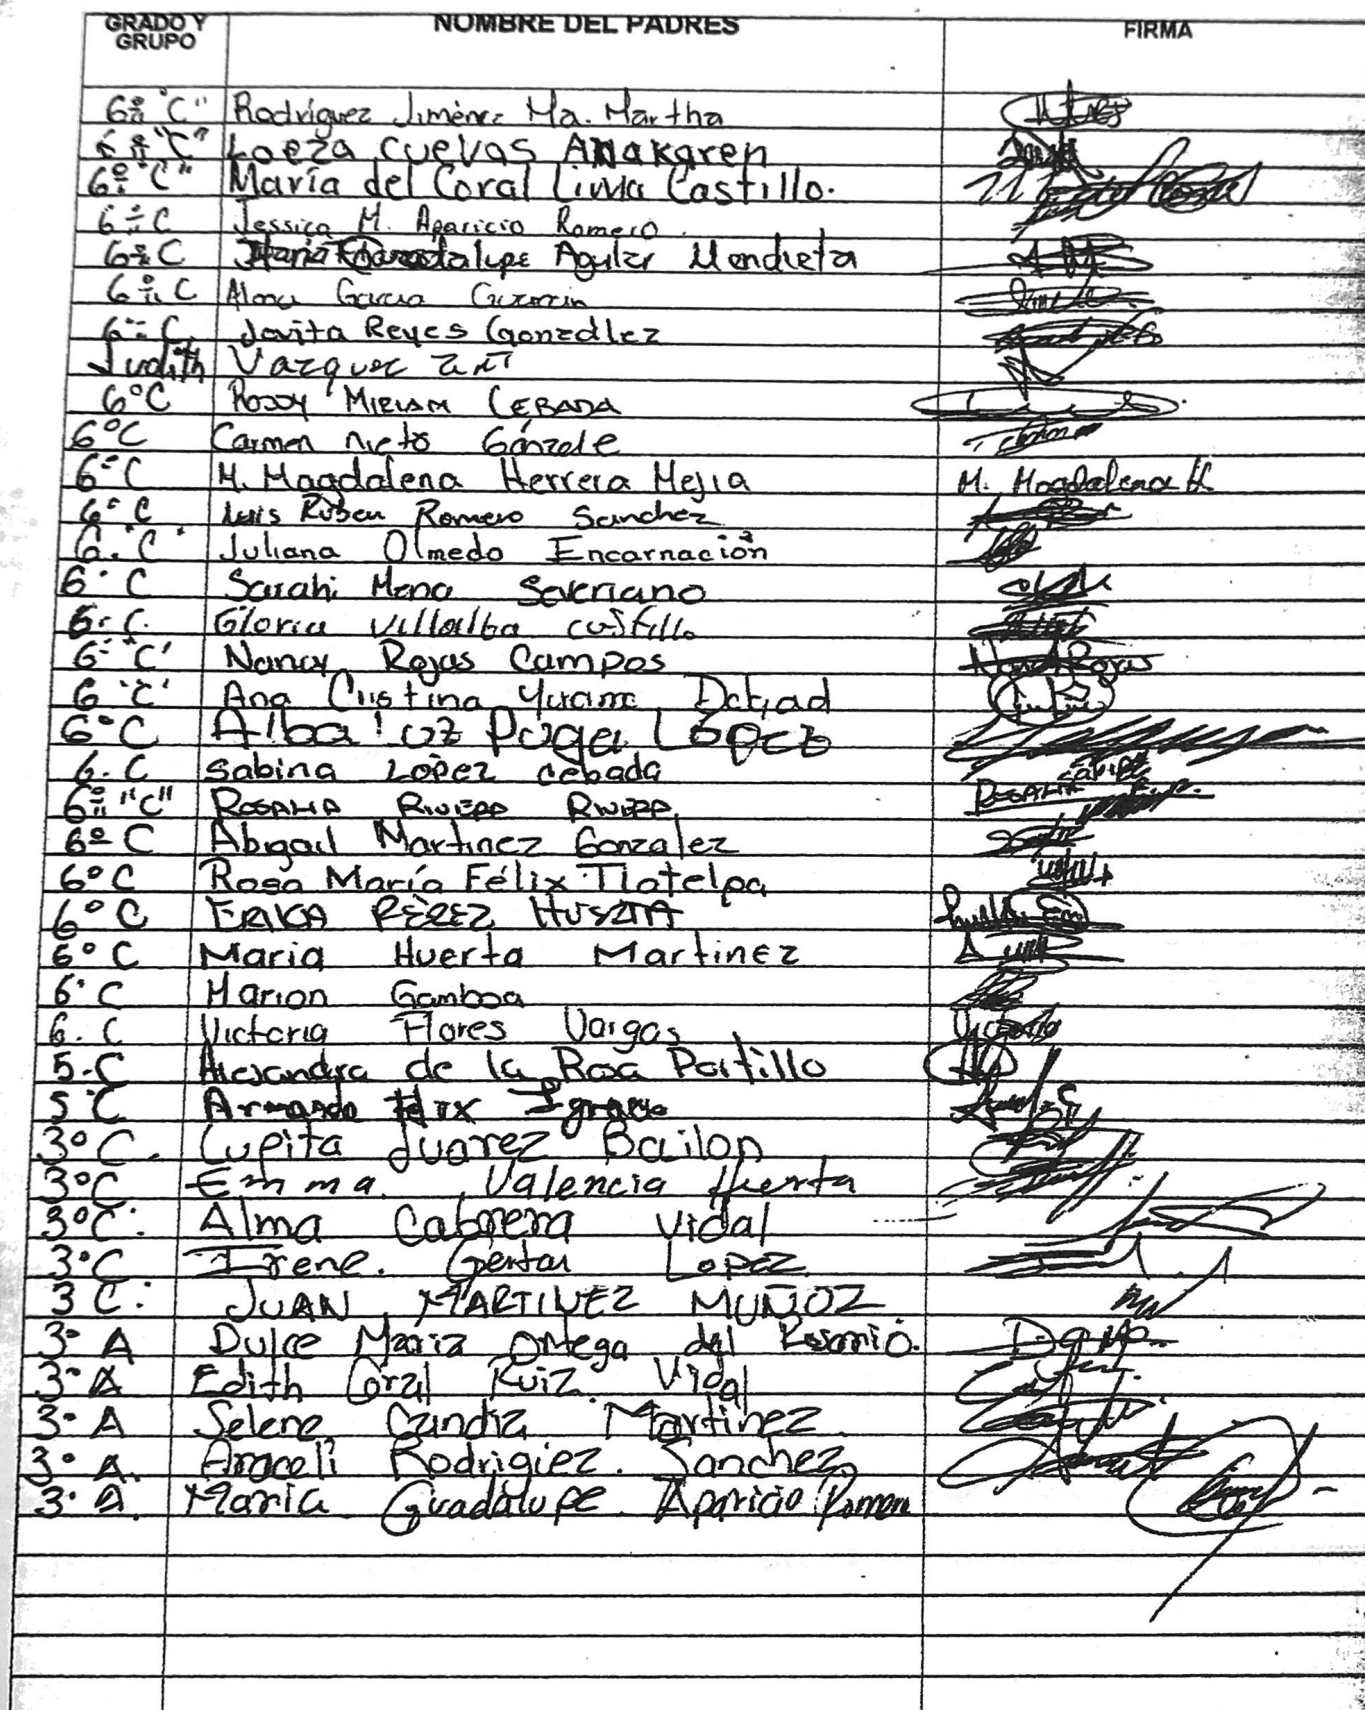 GRADO Y GRUPO NOMBRE DEL PADRES FIRMA
6º "C" Rodríguez Jiménez Ma. Martha
6º "C" Loeza Cuevas Anakaren
6º "C" María del Coral Lima Castillo.
6º C Jessica M. Aparicio Romero
6º C María Guadalupe Aguilar Mendieta
6º C Alma Garcia Guzman
6º C Jovita Reyes Gonzdlez
Judith Vazquez
6°C Rosy Miriam CEBADA
6°C Carmen nieto Gónzale
6º C M. Magdalena Herrera Mejia M. Magdalena H.
6º C Luis Ruben Romero Sanchez
6. "C" Juliana Olmedo Encarnación
6° C Sarahi Mena Severiano
6. C. Gloria Villalba Castillo
6º "C" Nancy Rojas Campos Nancy Rojas
6 "C" Ana Cristina
6°C Alba Luz Puga López
6. C Sabina LOPEZ cebada
6º "C" ROSALIA RIVERA RIVERA ROSALIA R. R.
6º C Abigail Martinez Gonzalez
6°C Rosa María Félix Tlatelpa
6°C ERIKA PÉREZ HUERTA
6°C Maria Huerta Martinez
6° C Marion Gamboa
6. C Victoria Flores Vargas Victoria
5.C Alejandra de la Rosa Portillo
5°C Armando Felix Ignacio
3°C. Lupita Juarez Bailon
3°C Emma Valencia Huerta
3°C. Alma Cabrera Vidal
3°C Irene. Lopez
3 C. JUAN MARTINEZ MUÑOZ
3° A Dulce Maria Ortega del Rosario.
3° A Edith Coral Ruiz Vidal
3° A Selene Candia Martinez
3° A. Araceli Rodrigiez. Sanchez
3° A. Maria Guadalupe Aparicio Romero